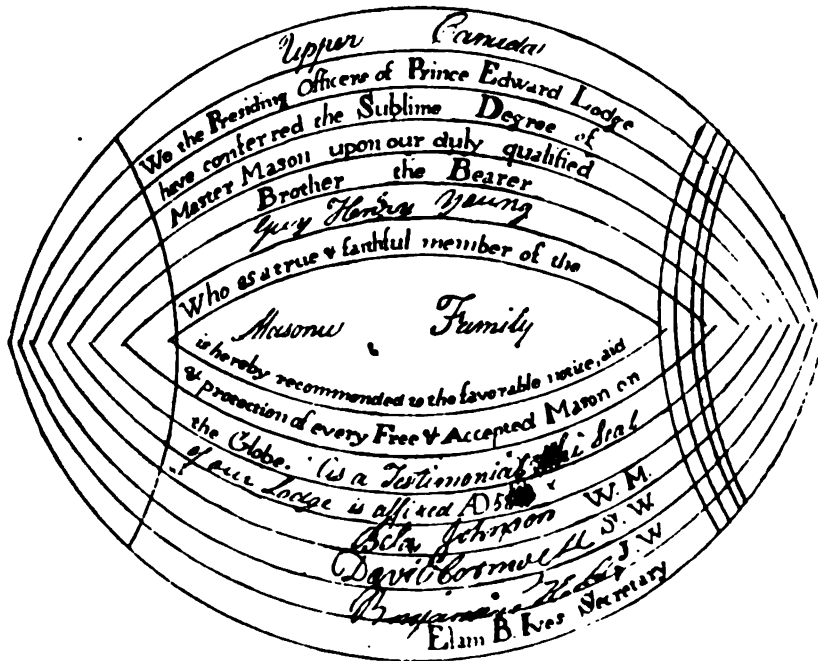 Upper Canada
We the Presiding Officers of Prince Edward Lodge
have conferred the Sublime Degree of
Master Mason upon our duly qualified
Brother the Bearer
Guy Henry Young
Who as a true & faithful member of the
Masonic Family
is hereby recommended to the favorable notice, aid
& protection of every Free & Accepted Mason on
the Globe. as a Testimonial Seal
of our Lodge is affixed AD 58
Johnson W. M.
David S. W
Benjamin J. W
Elam B. Ives Secretary